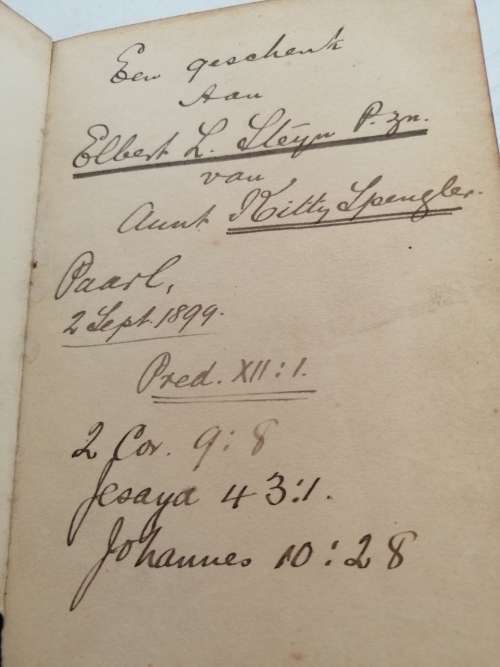 Een geschenk
Aan
Elbert L. Steyn P. zn.
van
Aunt Kitty Spengler.
Paarl,
2 Sept. 1899.
Pred. XII:1.
2 Cor. 9:8
Jesaya 43:1.
Johannes 10:28